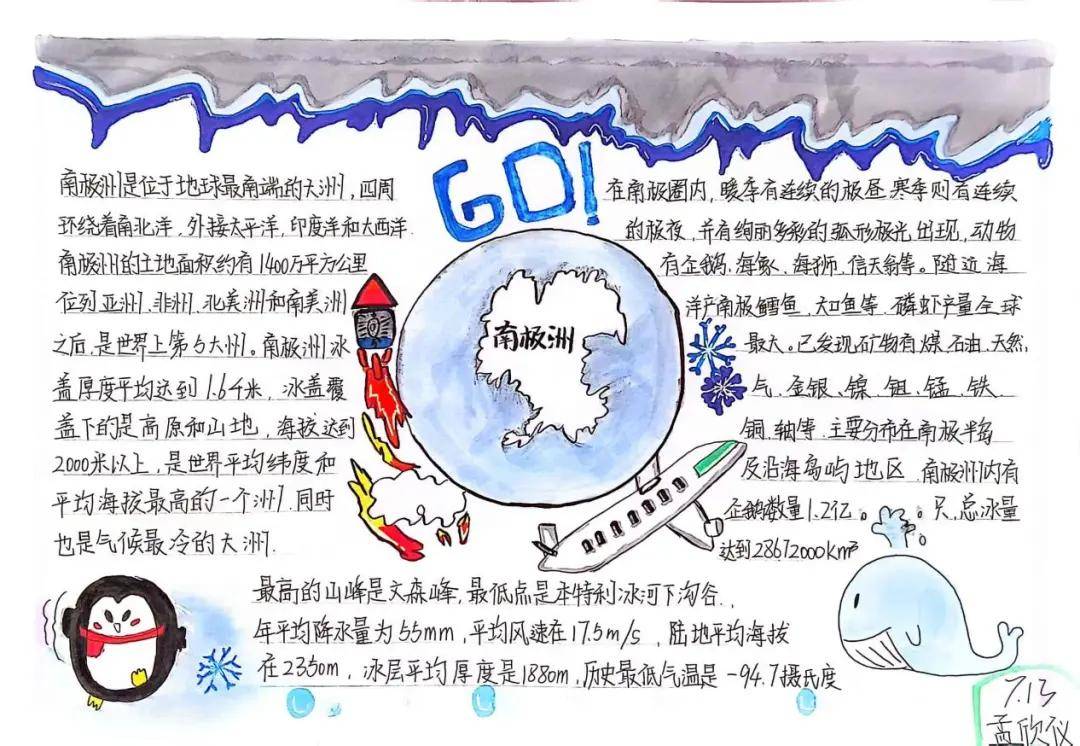 GO!
南极洲是位于地球最南端的大洲，四周
环绕着南北洋，外接太平洋，印度洋和大西洋.
南极州的土地面积约有1400万平方公里
位列亚洲、非洲、北美洲和南美洲
之后，是世界上第5大州。南极洲冰
盖厚度平均达到1.64米，冰盖覆
盖下的是高原和山地，海拔达到
2000米以上，是世界平均纬度和
平均海拔最高的一个洲，同时
也是气候最冷的大洲.
南极洲
在南极圈内，暖季有连续的极昼，寒季则有连续
的极夜，并有绚丽多彩的弧形极光出现，动物
有企鹅、海象、海狮、信天翁等。附近海
洋产南极鳕鱼、大口鱼等，磷虾产量全球
最大。已发现矿物有煤、石油、天然
气、金银、镍、钼、锰、铁、
铜、轴等，主要分布在南极半岛
及沿海岛屿地区，南极洲内有
企鹅数量1.2亿 只，总冰量
达到28672000km³
最高的山峰是文森峰，最低点是本特利冰河下沟谷.
年平均降水量为55mm，平均风速在17.5m/s，陆地平均海拔
在2350m，冰层平均厚度是1880m，历史最低气温是-94.7摄氏度
7.13
孟欣仪